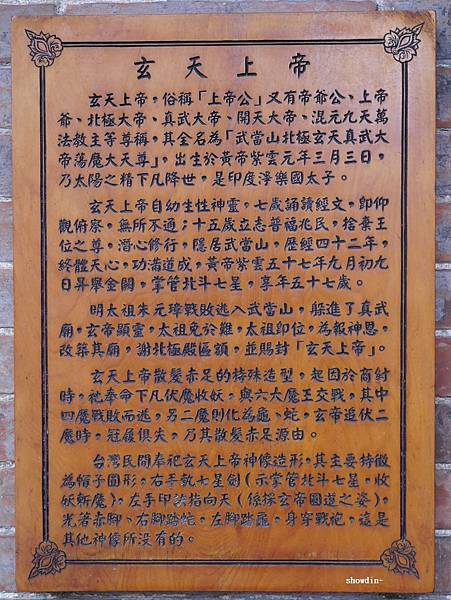 玄天上帝
玄天上帝，俗稱「上帝公」又有帝爺公、上帝
爺、北極大帝、真武大帝、開天大帝、混元九天萬
法教主等尊稱，其全名為「武當山北極玄天真武大
帝蕩魔大天尊」，出生於黃帝紫雲元年三月三日，
乃太陽之精下凡降世，是印度淨樂國太子。
玄天上帝自幼生性神靈，七歲誦讀經文，即仰
觀俯察，無所不通；十五歲立志普福兆民，捨棄王
位之尊，潛心修行，隱居武當山，歷經四十二年，
終體天心，功滿道成，黃帝紫雲五十七年九月初九
日昇舉金闕，掌管北斗七星，享年五十七歲。
明太祖朱元璋戰敗逃入武當山，躲進了真武
廟，玄帝顯靈，太祖免於難，太祖即位，為報神恩，
改築其廟，謝北極殿區額，並賜封「玄天上帝」。
玄天上帝散髮赤足的特殊造型，起因於商紂
時，祂奉命下凡伏魔收妖，與六大魔王交戰，其中
四魔戰敗而逃，另二魔則化為龜、蛇，玄帝追伏二
魔時，冠履俱失，乃其散髮赤足源由。
台灣民間奉祀玄天上帝神像造形，其主要特徵
為帽子圓形，右手執七星劍（示掌管北斗七星，收
妖斬魔），左手印訣指向天（係採玄帝圓道之姿），
光著赤腳、右腳踏蛇，左腳踏龜，身穿戰袍，這是
其他神像所沒有的。
showdin~